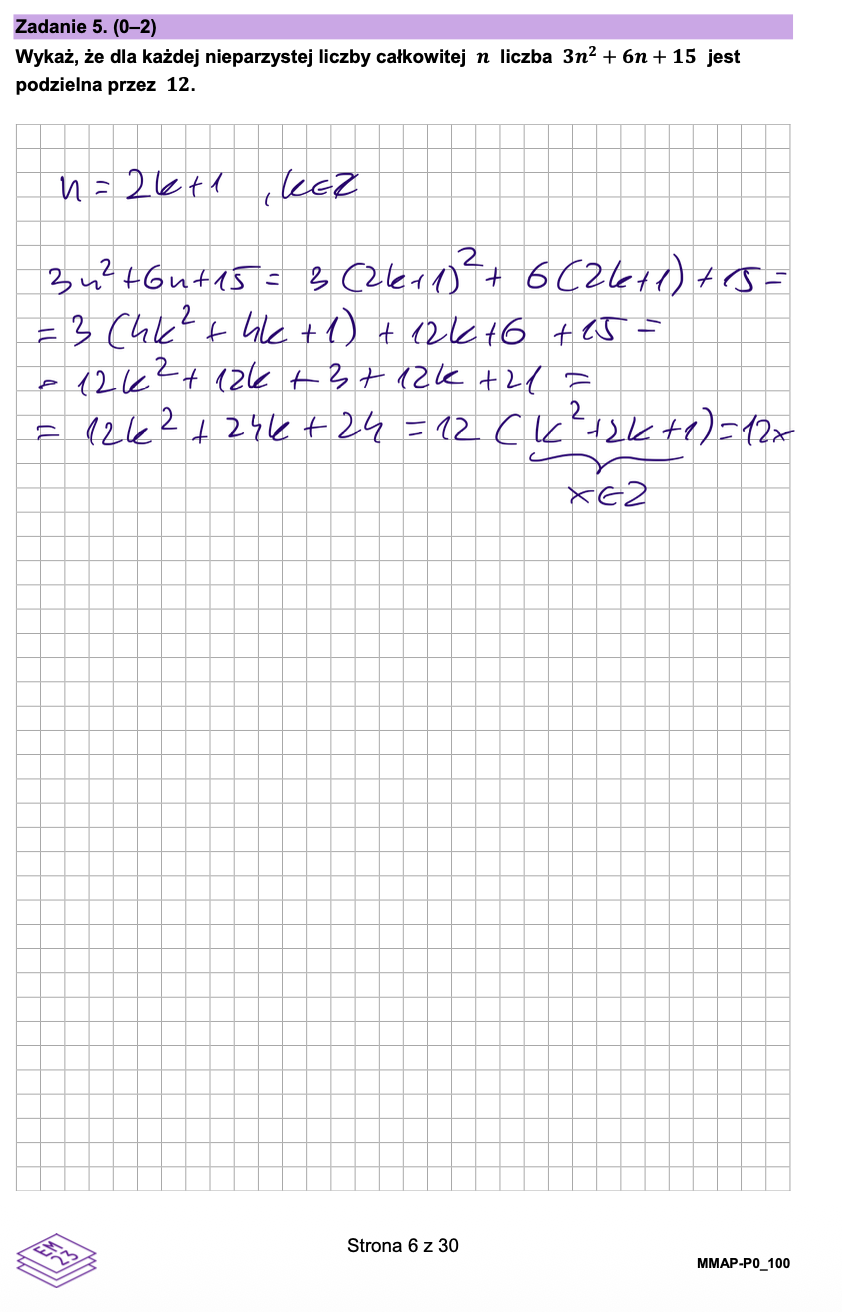 Zadanie 5. (0–2)
Wykaż, że dla każdej nieparzystej liczby całkowitej n liczba 3n² + 6n + 15 jest
podzielna przez 12.
n = 2k+1 , k∈Z
3n²+6n+15 = 3(2k+1)² + 6(2k+1) + 15 =
= 3(4k² + 4k + 1) + 12k+6 + 15 =
= 12k² + 12k + 3 + 12k + 21 =
= 12k² + 24k + 24 = 12 (k²+2k+1) = 12x
x∈Z
EM
23
Strona 6 z 30
MMAP-P0_100